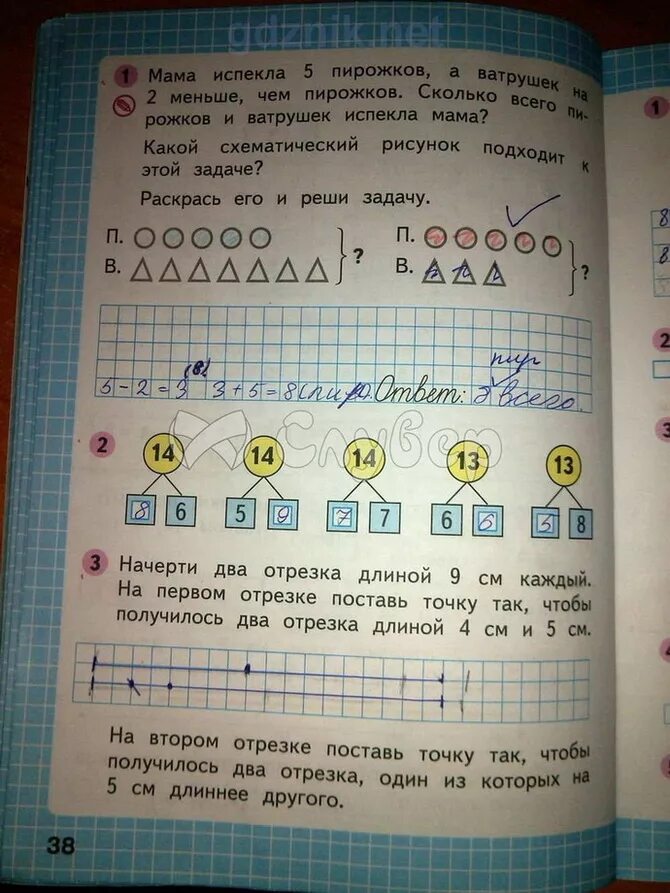 gdznik.net
1 Мама испекла 5 пирожков, а ватрушек на
2 меньше, чем пирожков. Сколько всего пи-
рожков и ватрушек испекла мама?
Какой схематический рисунок подходит к
этой задаче?
Раскрась его и реши задачу.
П. ? П. ?
В. В.
5-2=3 (в) 3+5=8 Ответ: всего.
Слувер
2 14 14 14 13 13
8 6 5 9 7 7 6 5 8
3 Начерти два отрезка длиной 9 см каждый.
На первом отрезке поставь точку так, чтобы
получилось два отрезка длиной 4 см и 5 см.
На втором отрезке поставь точку так, чтобы
получилось два отрезка, один из которых на
5 см длиннее другого.
38
1
8
8
2
3